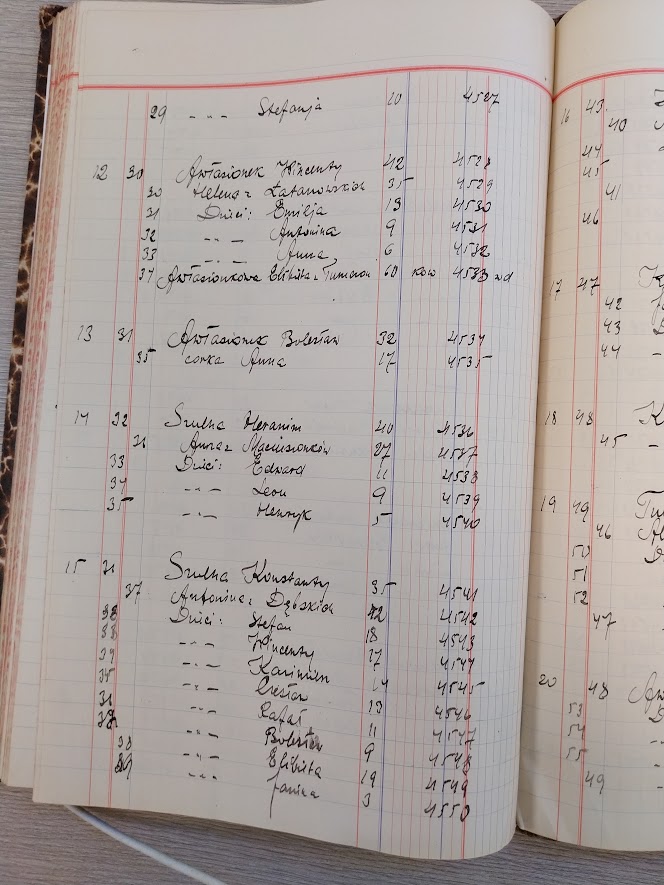 29 -"- Stefanja 10 4527
12 30 Antasionek Wincenty 42 4528
30 Helena z Łatanowskich 35 4529
31 Dzieci: Emilja 13 4530
32 -"- Antonina 9 4531
33 -"- Anna 6 4532
34 Elżbieta z 60 4533 wd
13 31 Antasionek Bolesław 32 4534
35 córka Anna 17 4535
14 32 Szulha 40 4536
Anna z 27 4537
33 Dzieci: Edward 11 4538
34 -"- Leon 9 4539
35 -"- Henryk 5 4540
15 Szulha Konstanty 35 4541
37 Antonina z Dąbskich 42 4542
38 Dzieci: Stefan 18 4543
38 -"- Wincenty 17 4544
39 -"- Kazimierz 14 4545
-"- Czesław 13 4546
-"- Rafał 11 4547
-"- Bolesław 9 4548
38 -"- Elżbieta 19 4549
39 -"- Janina 3 4550
16 43
40
44
45
41
46
17 47
42
43
44
18 48
45
19 49
46
50
51
52
47
20 48
53
54
55
49